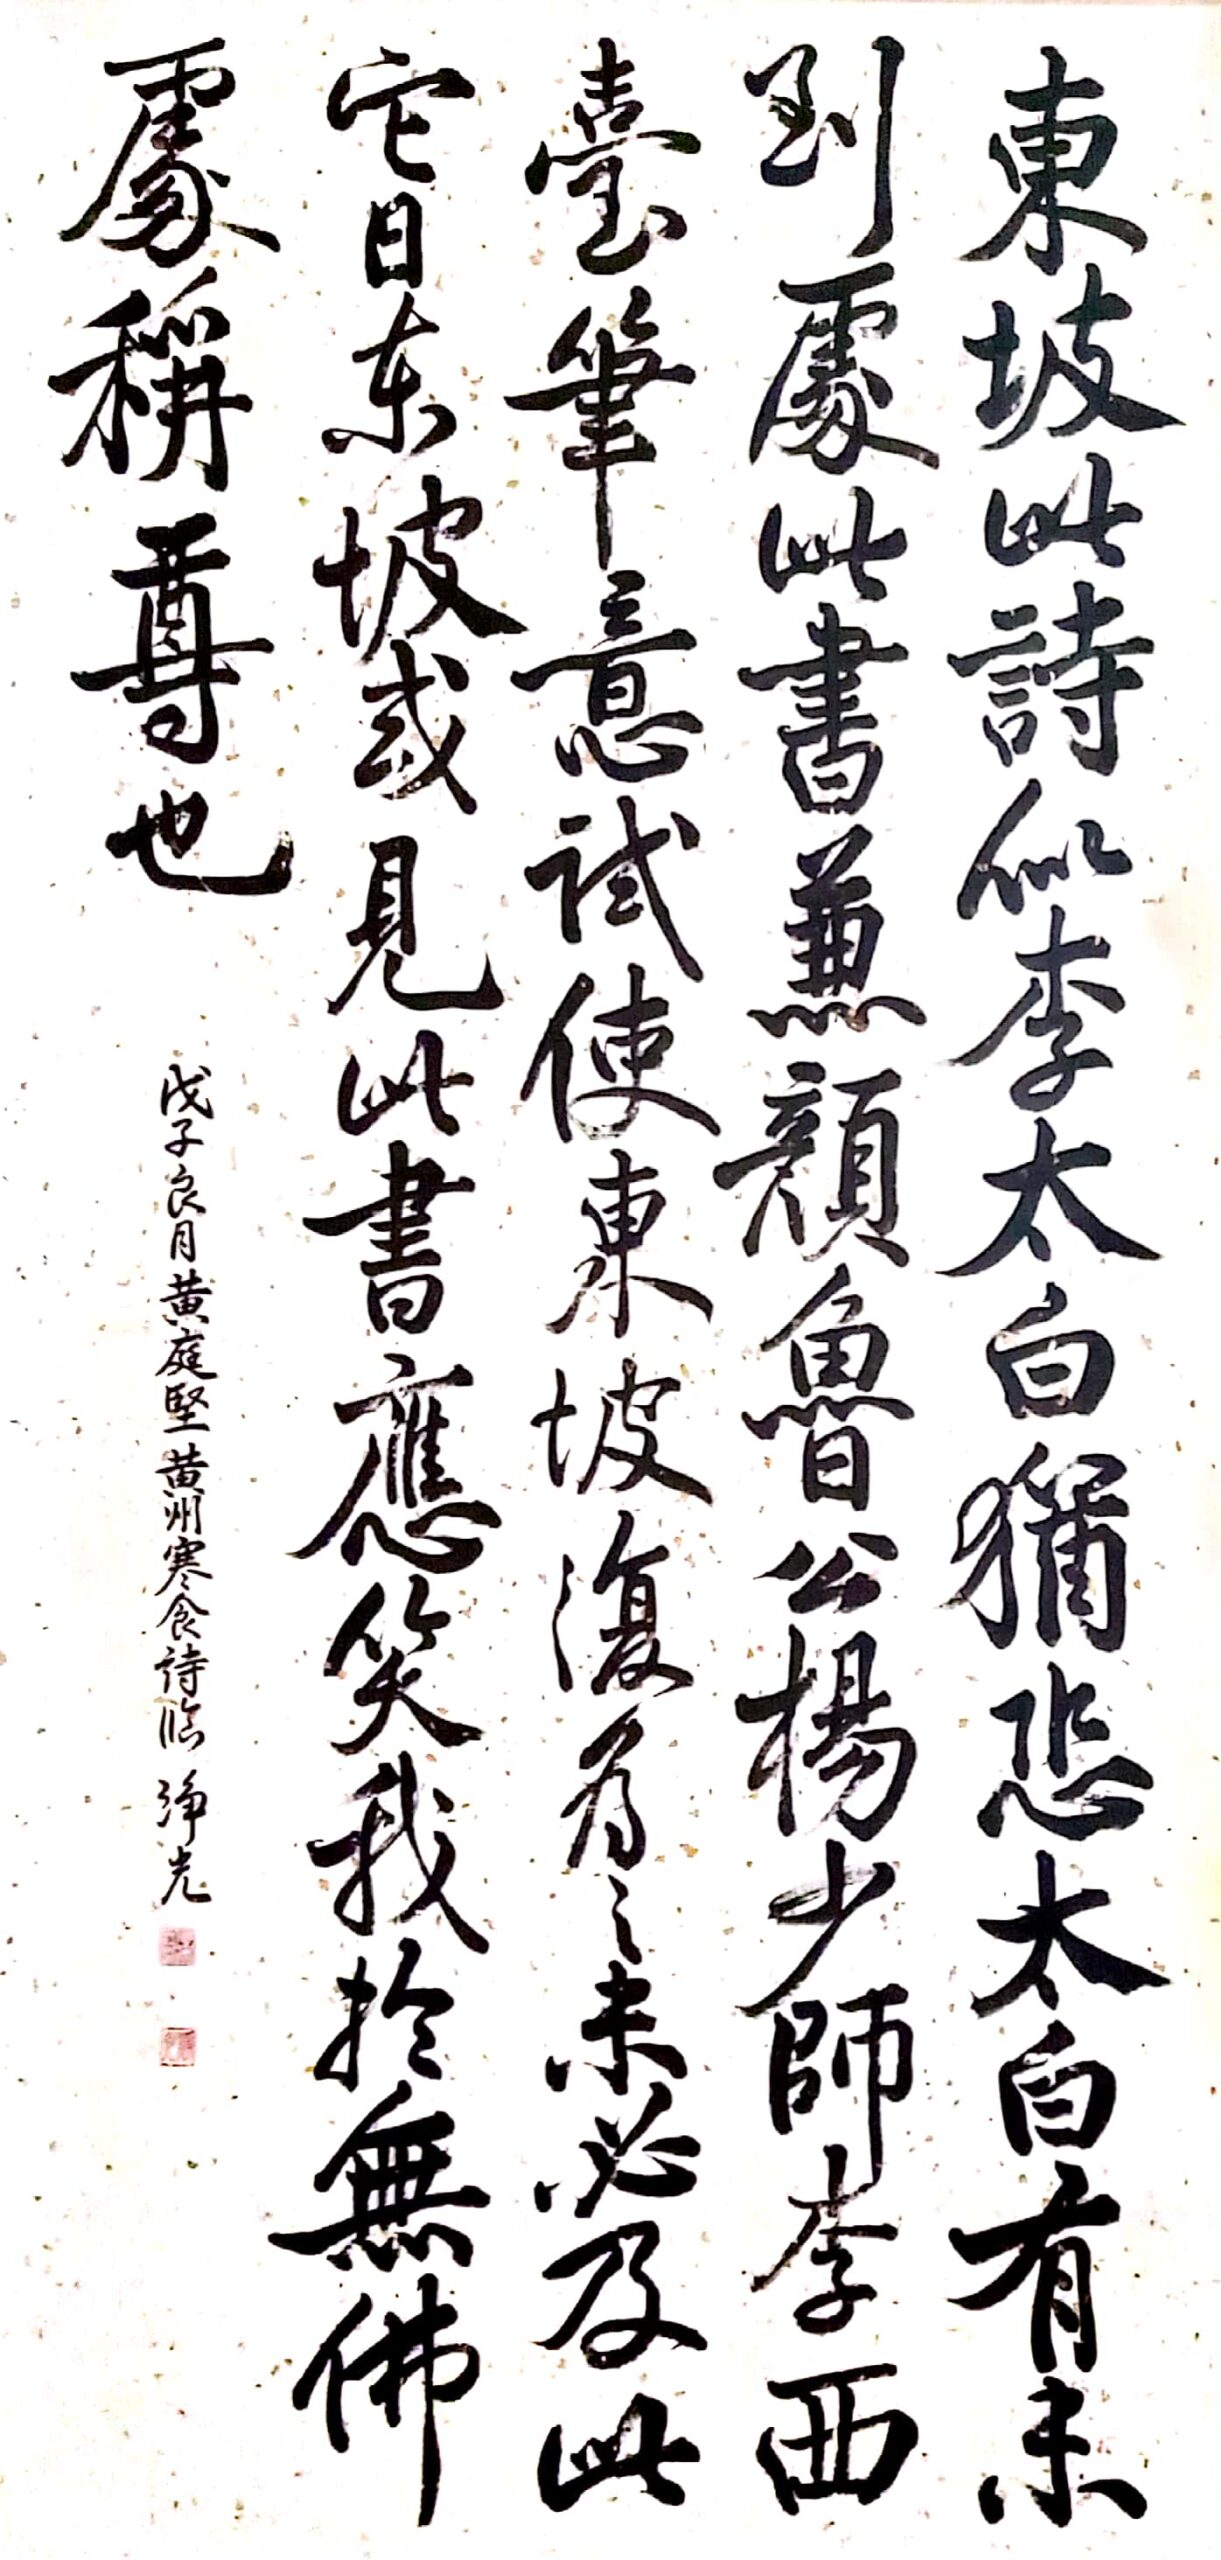 東坡此詩似李太白猶恐太白有未
到處此書兼顏魯公楊少師李西
臺筆意試使東坡復為之未必及此
它日東坡或見此書應笑我於無佛
處稱尊也
戊子良月黃庭堅黃州寒食詩臨 淨光